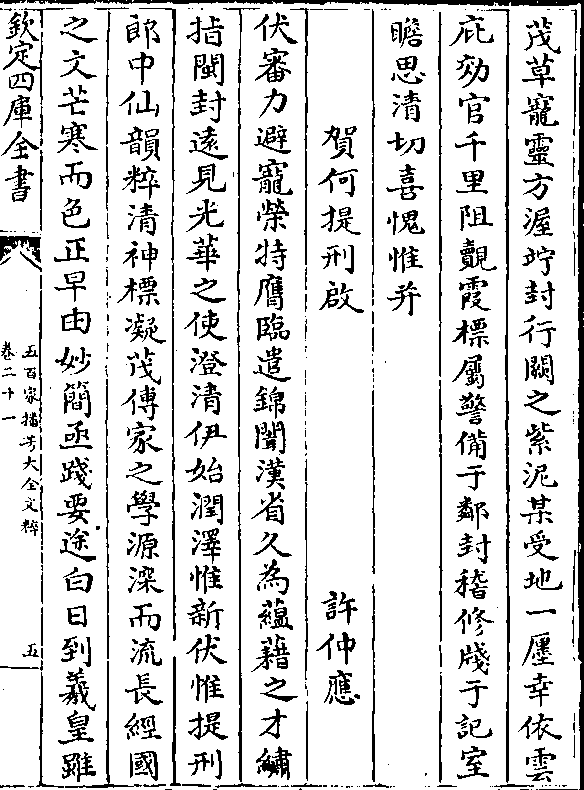 茂草寵靈方渥竚封行闕之紫泥某受地一廛幸依雲
庇効官千里阻覿霞標屬警備于鄰封稽修牋于記室
瞻思清切喜愧惟并
賀何提刑啟
許仲應
伏審力避寵榮特膺臨遣錦闈漢省久為蘊藉之才繡
指閩封遠見光華之使澄清伊始潤澤惟新伏惟提刑
郎中仙韻粹清神標凝茂傳家之學源深而流長經國
之文芒寒而色正早由妙簡亟踐要途白日到羲皇雖
欽定四庫全書
五百家播芳大全文粹
卷二十一
五